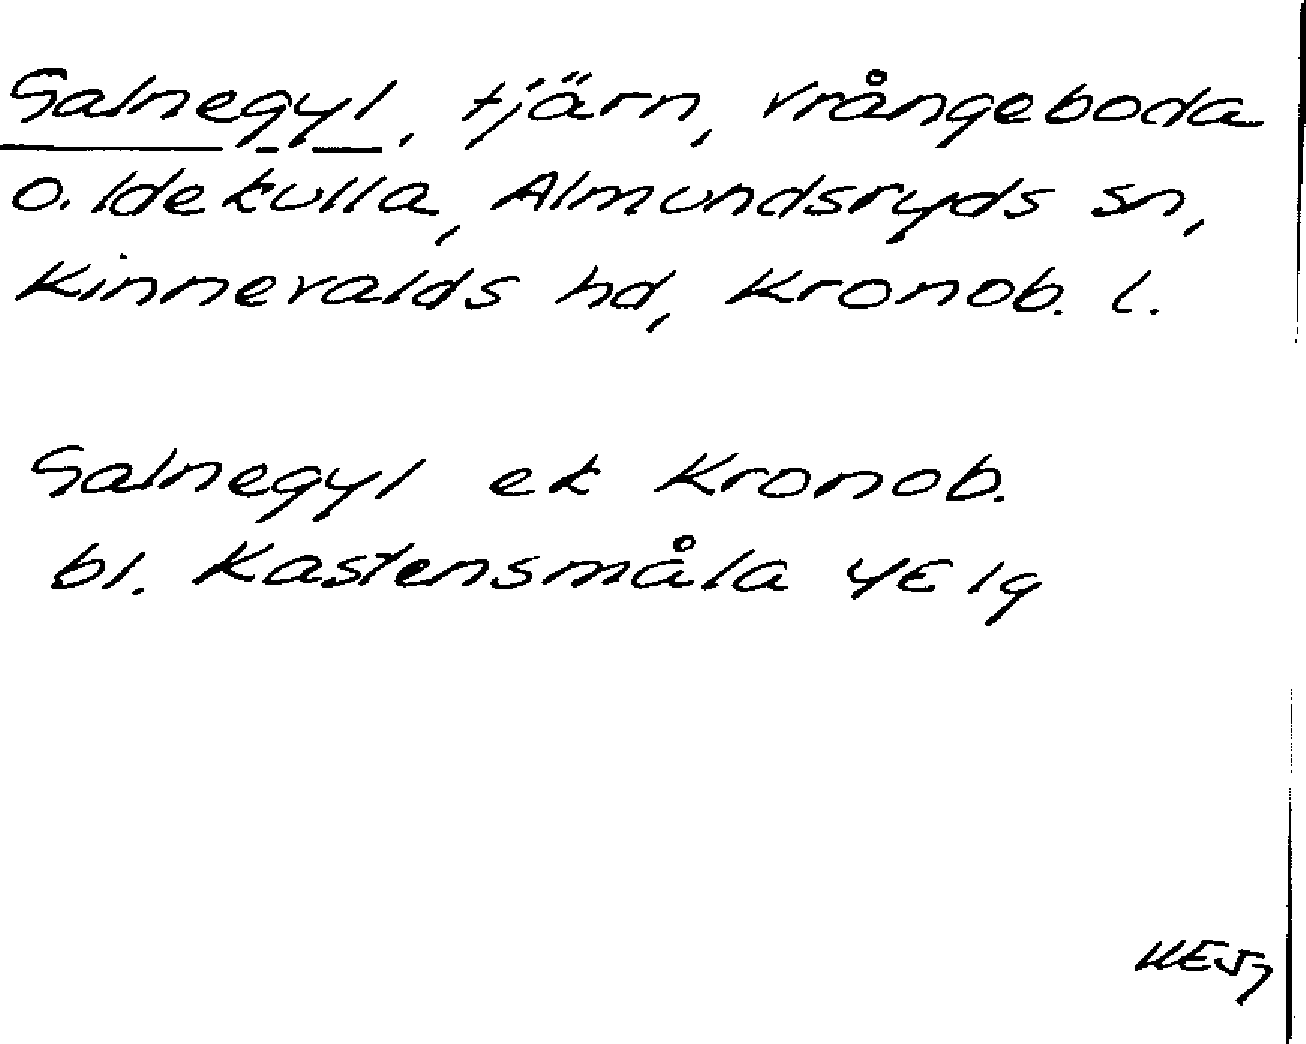 Galnegyl, tjärn, Vrångeboda
o. Idekulla, Almundsryds sn,
Kinnevalds hd, Kronob. l.
Galnegyl ek Kronob.
bl. Kastensmåla 4E 1g